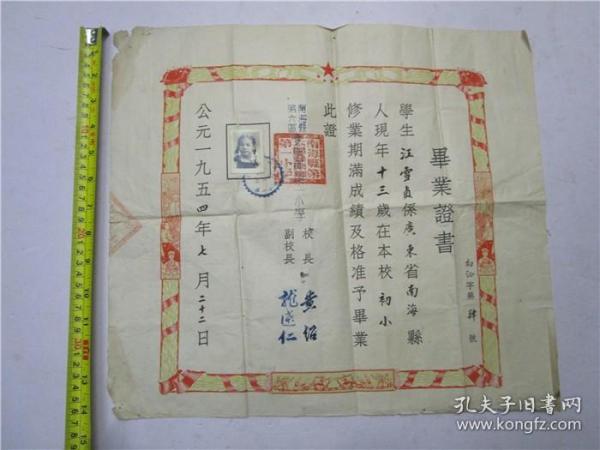 畢業證書
學生江雪貞係廣東省南海縣
人現年十三歲在本校初小
修業期滿成績及格准予畢業
此證
南海縣
第六區
小學
校長 黃紹
副校長
公元一九五四年七月二十二日
字第肆號
孔夫子旧书网
www.kongfz.com